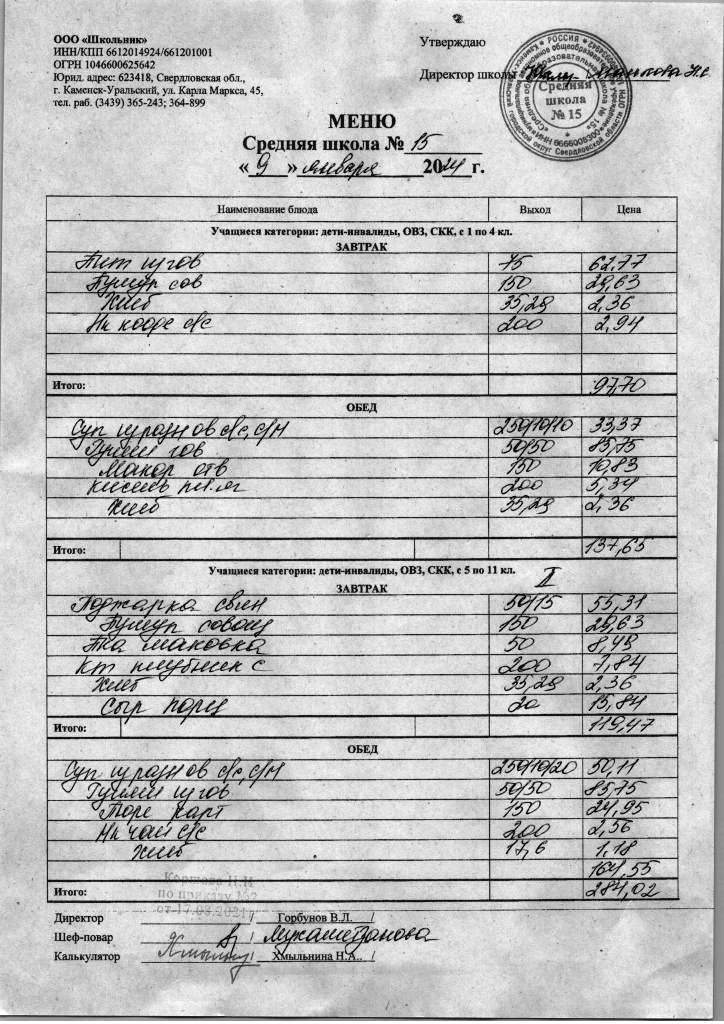 ООО «Школьник»
ИНН/КПП 6612014924/661201001
ОГРН 1046600625642
Юрид. адрес: 623418, Свердловская обл.,
г. Каменск-Уральский, ул. Карла Маркса, 45,
тел. раб. (3439) 365-243; 364-899
Утверждаю
Директор школы
Средняя
школа
№ 15
МЕНЮ
Средняя школа № 15
« 9 » января 2024 г.
Наименование блюда Выход Цена
Учащиеся категории: дети-инвалиды, ОВЗ, СКК, с 1 по 4 кл.
ЗАВТРАК
75 62,77
150 29,63
Хлеб 35,29 2,36
Нп кофе с/с 200 2,94
Итого: 97,70
ОБЕД
Суп с/с, с/м 250/10/10 33,37
Гуляш гов 50/50 85,75
Макар отв 150 10,83
Кисель 200 5,34
Хлеб 35,29 2,36
Итого: 137,65
Учащиеся категории: дети-инвалиды, ОВЗ, СКК, с 5 по 11 кл. II
ЗАВТРАК
Поджарка свин 50/15 55,31
150 29,63
маковка 50 8,49
200 7,84
Хлеб 35,29 2,36
Сыр порц 20 15,84
Итого: 119,47
ОБЕД
Суп с/с, с/м 250/10/20 50,11
Гуляш 50/50 85,75
карт 150 24,95
Нп чай с/с 200 2,56
Хлеб 17,6 1,18
164,55
Итого: 284,02
по приказу №2
Директор / Горбунов В.Л. /
Шеф-повар / Мухаметзанова
Калькулятор / Хмыльнина Н.А.. /